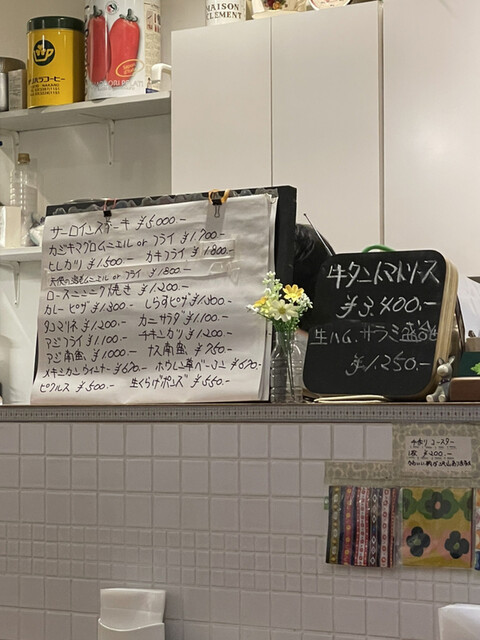 MAISON
CLEMENT
サーロインステーキ ¥5000-
カジキマグロムニエル or フライ ¥1700-
ヒレカツ ¥1,500- カキフライ ¥1800-
天使の海老ムニエル or フライ ¥1800-
ロースニンニク焼き ¥1200-
カレーピザ ¥1300- しらすピザ ¥1300-
タコマリネ ¥1200- カニサラダ ¥1100-
アジフライ ¥1100- チキンカツ ¥1200-
アジ南蛮 ¥1000- ナス南蛮 ¥750-
メキシカンウインナー ¥670- ホウレン草ベーコン ¥670-
ピクルス ¥500- 生くらげポンズ ¥550-
牛タントマトソース
¥3,400.-
生ハム、サラミ盛合せ
¥1,250.-
手作りコースター
1枚 ¥200.-